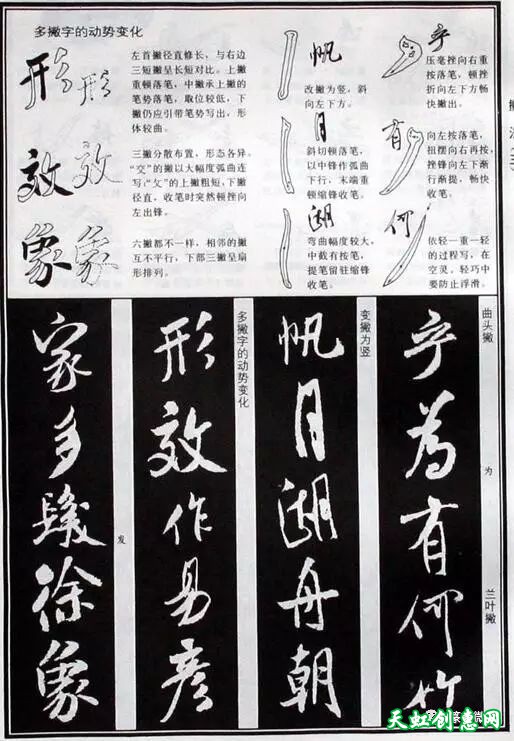 多撇字的动势变化
形 形
左首撇径直修长，与右边
三短撇呈长短对比。上撇
重顿落笔，中撇承上撇的
笔势落笔，取位较低，下
撇仍应引带笔势写出，形
体较曲。
效 效
三撇分散布置，形态各异。
“交”的撇以大幅度弧曲连
写；“攵”的上撇粗短，下撇
径直，收笔时突然顿挫向
左出锋。
象 象
六撇都不一样，相邻的撇
互不平行，下部三撇呈扇
形排列。
帆
改撇为竖，斜
向左下方。
月
斜切顿落笔，
以中锋作弧曲
下行，末端重
顿缩锋收笔。
湖
弯曲幅度较大，
中截有按笔，
提笔留驻缩锋
收笔。
乎
压毫挫向右重
按落笔，顿挫
折向左下方畅
快撇出。
有
向左按落笔，
扭摆向右再按，
挫锋向左下渐
行渐提，畅快
收笔。
何
依轻一重一轻
的过程写，在
空灵，轻巧中
要防止浮滑。
曲头撇
为
兰叶撇
乎为有何竹
变撇为竖
帆月湖舟朝
多撇字的动势变化
形效作易彦
发
家多发徐象
天虹创意网